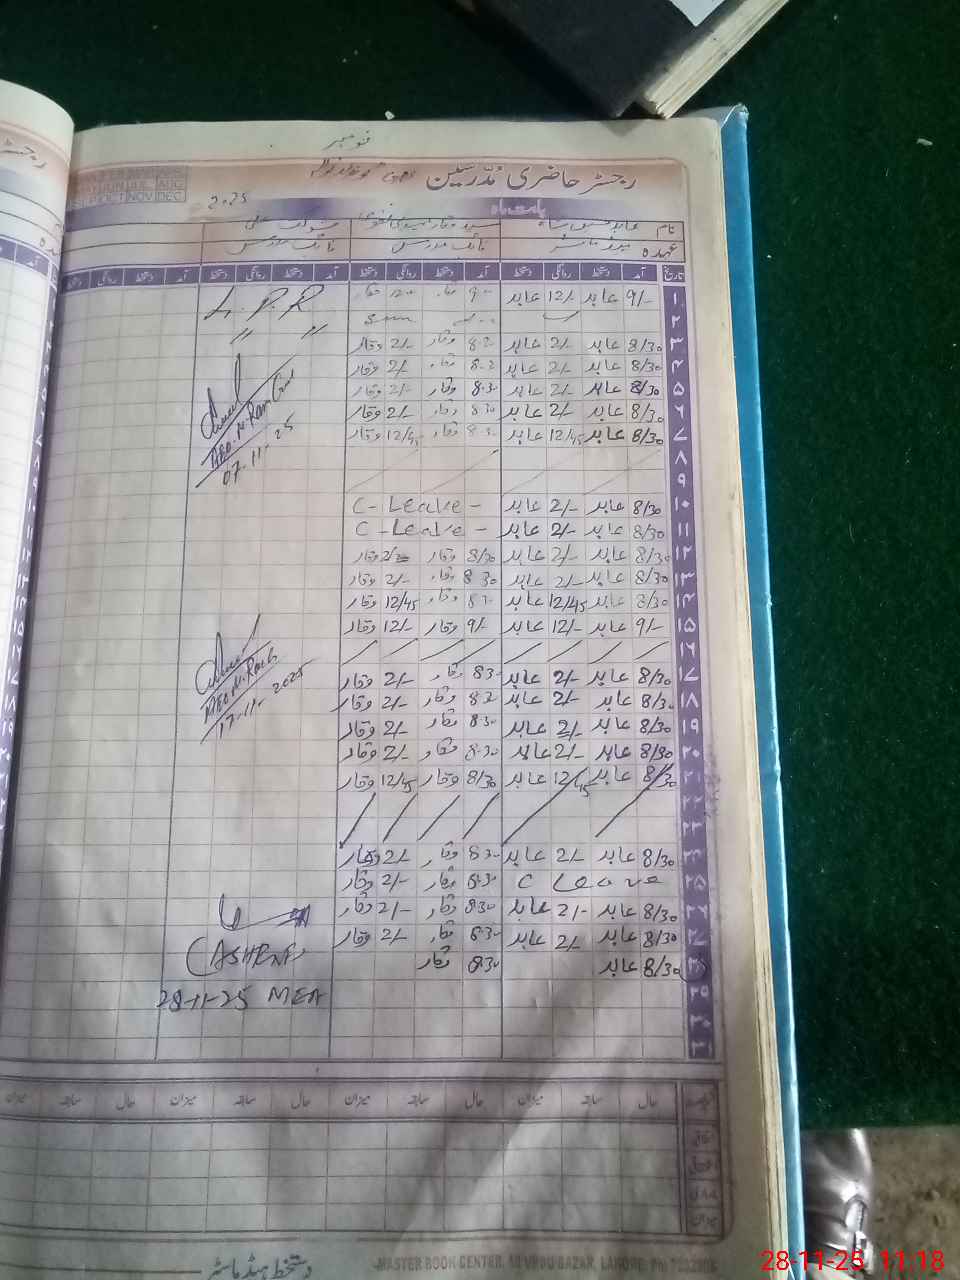 نومبر
رجسٹر حاضری مُدرسین
2025
JUN JUL AUG
OCT NOV DEC
بابت ماہ
نام عابد حسین شاہ سید وقار شوکت علی
عہدہ ہیڈ ماسٹر نائب مدرس نائب مدرس
تاریخ آمد دستخط روانگی دستخط آمد دستخط روانگی دستخط آمد دستخط روانگی دستخط آمد دستخط روانگی دستخط
۱ 9/- عابد 12/- عابد 9- وقار 12-- وقار L.P.R
۲ Sun
۳ 8/30 عابد 2/- عابد 8-30 وقار 2/- وقار " "
۴ 8/30 عابد 2/- عابد 8-30 وقار 2/- وقار
۵ 8/30 عابد 2/- عابد 8-30 وقار 2/- وقار
۶ 8/30 عابد 2/- عابد 8-30 وقار 2/- وقار
۷ 8/30 عابد 12/45 عابد 8-30 وقار 12/45 وقار
07-11-25
۸
۹
۱۰ 8/30 عابد 2/- عابد C - Leave -
۱۱ 8/30 عابد 2/- عابد C - Leave -
۱۲ 8/30 عابد 2/- عابد 8/30 وقار 2/- وقار
۱۳ 8/30 عابد 2/- عابد 8-30 وقار 2/- وقار
۱۴ 8/30 عابد 12/45 عابد 8-30 وقار 12/45 وقار
۱۵ 9/- عابد 12/- عابد 9/- وقار 12/- وقار
۱۶
۱۷ 8/30 عابد 2/- عابد 8-30 وقار 2/- وقار
۱۸ 8/30 عابد 2/- عابد 8-30 وقار 2/- وقار
17-11-2025
۱۹ 8/30 عابد 2/- عابد 8-30 وقار 2/- وقار
۲۰ 8/30 عابد 2/- عابد 8-30 وقار 2/- وقار
۲۱ 8/30 عابد 12/45 عابد 8/30 وقار 12/45 وقار
۲۲
۲۳
۲۴ 8/30 عابد 2/- عابد 8-30 وقار 2/- وقار
۲۵ C Leave 8-30 وقار 2/- وقار
۲۶ 8/30 عابد 2/- عابد 8-30 وقار 2/- وقار
۲۷ 8/30 عابد 2/- عابد 8-30 وقار 2/- وقار
۲۸ 8/30 عابد 8-30 وقار
28-11-25 MEA
۲۹
۳۰
۳۱
حال سابقہ میزان حال سابقہ میزان حال سابقہ میزان
میزان
دستخط ہیڈ ماسٹر
MASTER BOOK CENTER, URDU BAZAR, LAHORE.
28-11-25 11:18